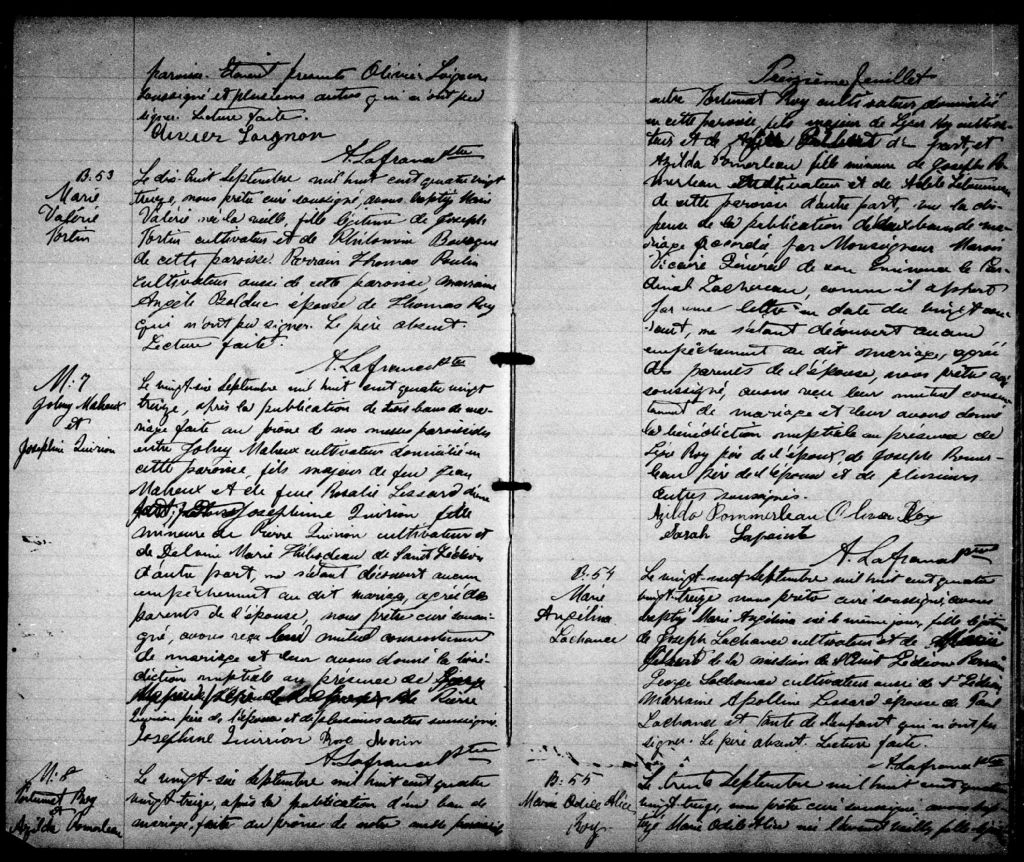 paroisse. Etaient presents Olivier
soussigné et plusieurs autres qui n'ont pu
signer. Lecture faite.
Olivier Loignon
A. Lafrance Ptre
B. 53
Marie
Valérie
Fortin
Le dix-huit Septembre mil huit cent quatre vingt
treize, nous pretre curé soussigné, avons baptisé Marie
Valérie née la veille, fille légitime de Joseph
Fortin cultivateur et de Philomène
de cette paroisse. Parrain Thomas Poulin
cultivateur aussi de cette paroisse, marraine
Angèle Bolduc épouse de Thomas Roy
qui n'ont pu signer. Le père absent.
Lecture faite.
A. Lafrance Ptre
M. 7
Maheux
et
Joséphine Quirion
Le vingt-six Septembre mil huit cent quatre vingt
treize, après la publication de trois bans de ma-
riage faite au prône de nos messes paroissiales
entre Maheux cultivateur domicilié en
cette paroisse, fils majeur de feu Jean
Maheux et de feue Rosalie Lessard d'une
part, Joséphine Quirion fille
mineure de Pierre Quirion cultivateur et
de Marie Thibodeau de Saint
d'autre part, ne s'étant découvert aucun
empêchement au dit mariage, agréé des
parents de l'épouse, nous pretre curé soussi-
gné, avons reçu leur mutuel consentement
de mariage et leur avons donné la béné-
diction nuptiale en présence de
de Pierre
Quirion père de l'épouse et de plusieurs autres soussignés.
Josephine Quirion Morin
A. Lafrance Ptre
M. 8
Fortunat Roy
et
Azilda Pomerleau
Le vingt-six Septembre mil huit cent quatre
vingt-treize, après la publication d'un ban de
mariage, faite au prône de notre messe paroissiale
Treizième feuillet
entre Fortunat Roy cultivateur, domicilié
en cette paroisse, fils majeur de Roy cultiva-
teur et de d'une part, et
Azilda Pomerleau fille mineure de Joseph Po-
merleau cultivateur et de
de cette paroisse d'autre part, vu la dis-
pense de la publication de deux bans de ma-
riage accordée par Monseigneur Marois
Vicaire Général de son Eminence le Car-
dinal Taschereau, comme il appert
par une lettre en date du vingt cou-
rant, ne s'étant découvert aucun
empêchement au dit mariage, agréé
des parents de l'épouse, nous pretre curé
soussigné, avons reçu leur mutuel consen-
tement de mariage et leur avons donné
la bénédiction nuptiale en présence de
Roy père de l'époux, de Joseph Pomer-
leau père de l'épouse et de plusieurs
autres soussignés.
Azilda Pommerleau Roy
Sarah Lapointe
A. Lafrance Ptre
B. 54
Marie
Angélina
Lachance
Le vingt-neuf Septembre mil huit cent quatre
vingt-treize nous pretre curé soussigné, avons
baptisé Marie Angélina née le même jour, fille légitime
de Joseph Lachance cultivateur et de
de la mission de Parrain
George Lachance cultivateur aussi de St
Marraine Apolline Lessard épouse de Paul
Lachance et tante de l'enfant qui n'ont pu
signer. Le père absent. Lecture faite.
A. Lafrance Ptre
B. 55
Marie Odile Alice
Roy
Le trente Septembre mil huit cent quatre
vingt-treize, nous pretre curé soussigné avons bap-
tisé Marie Odile Alice née l'avant veille, fille légitime